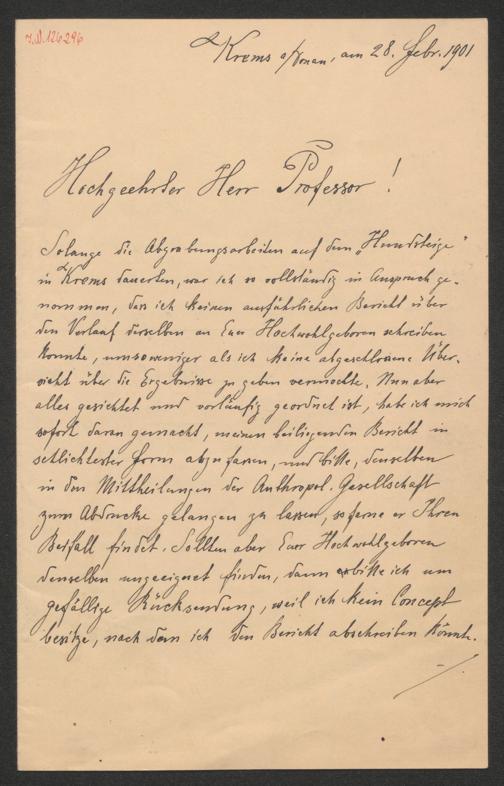 J.N. 126296
Krems a/Donau, am 28. Febr. 1901
Hochgeehrter Herr Professor!
Solange die Abgrabungsarbeiten auf dem „Hundssteige“
in Krems dauerten, war ich so vollständig in Anspruch ge-
nommen, dass ich keinen ausführlichen Bericht über
den Verlauf derselben an Euer Hochwohlgeboren schreiben
konnte, umsoweniger als ich keine abgeschlossene Über-
sicht über die Ergebnisse zu geben vermochte. Nun aber
alles gesichtet und vorläufig geordnet ist, habe ich mich
sofort daran gemacht, meinen beiliegenden Bericht in
schlichtester Form abzufassen, und bitte, denselben
in den Mittheilungen der Anthropol. Gesellschaft
zum Abdrucke gelangen zu lassen, soferne er Ihren
Beifall findet. Sollten aber Euer Hochwohlgeboren
denselben ungeeignet finden, dann erbitte ich um
gefällige Rücksendung, weil ich kein Concept
besitze, nach dem ich den Bericht abschreiben könnte.